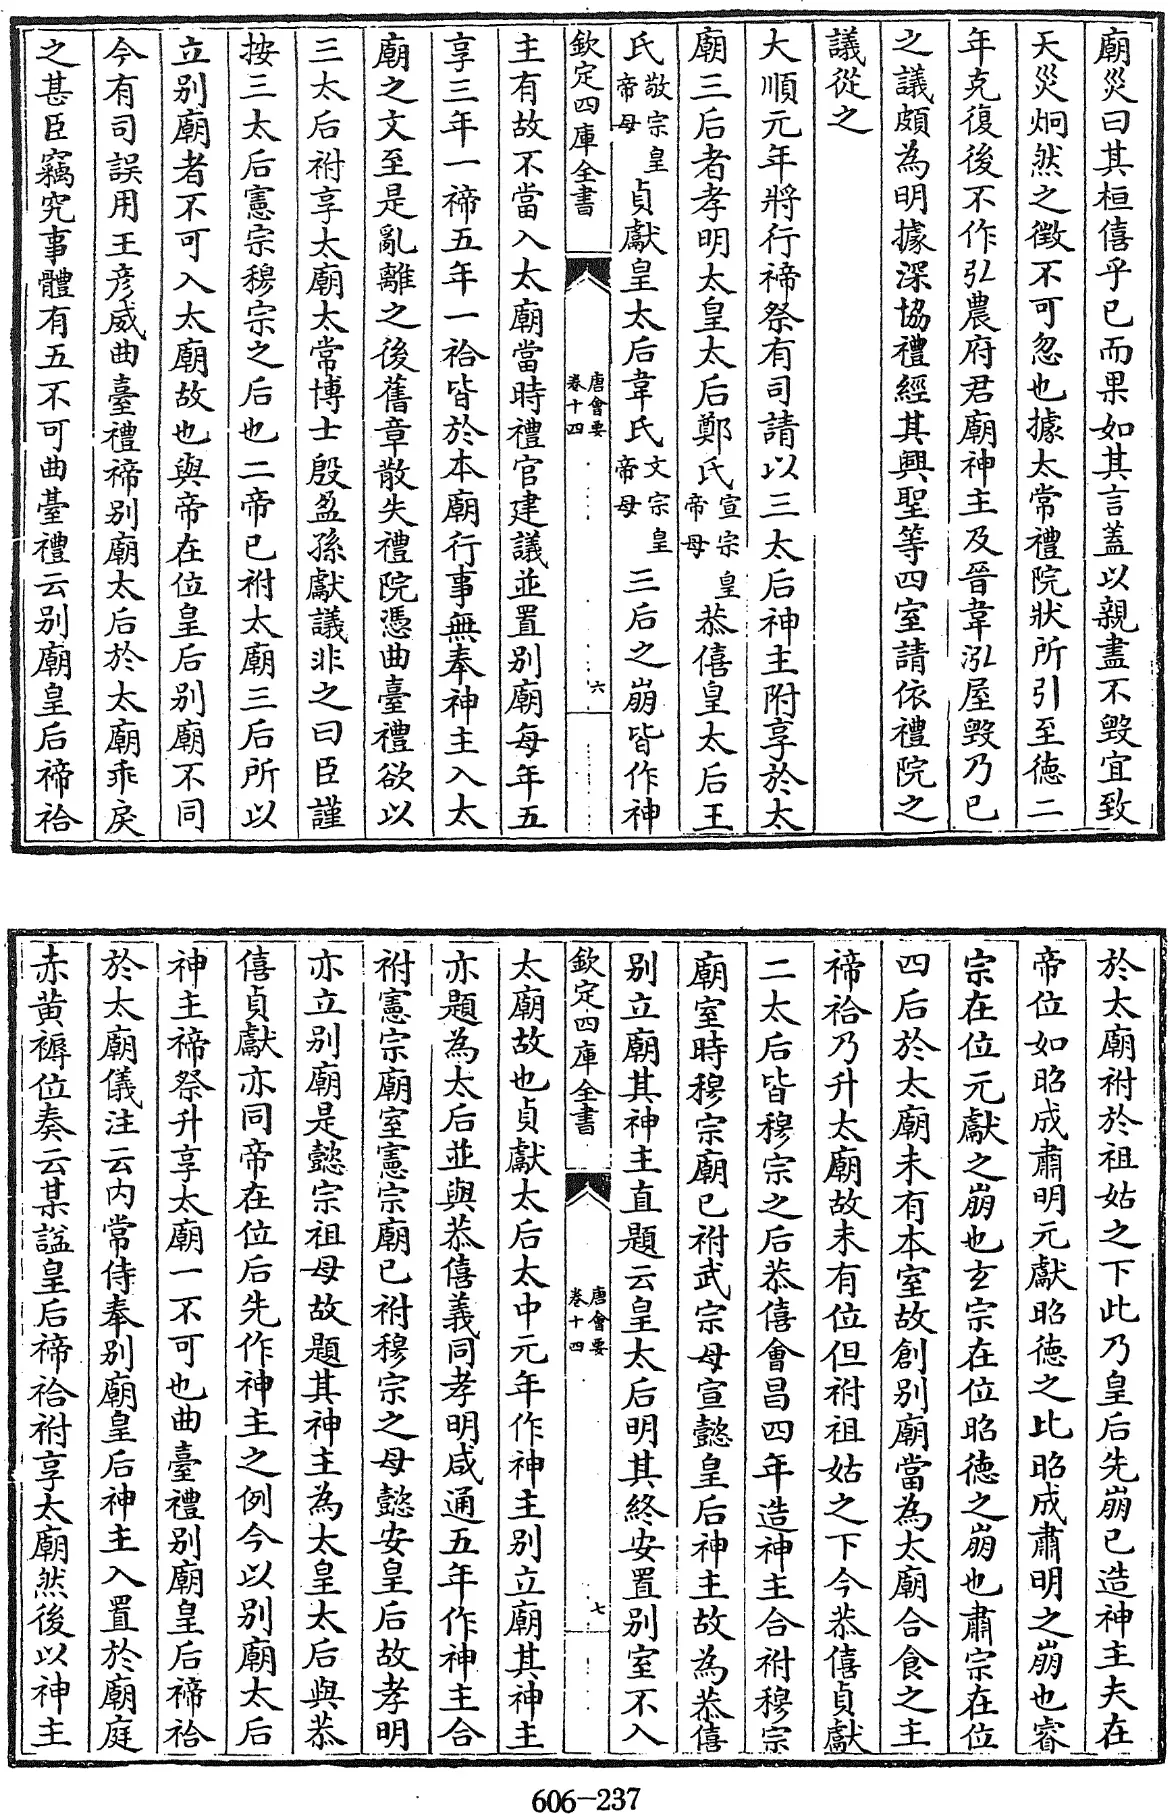 廟災曰其桓僖乎已而果如其言蓋以親盡不毀宜致
天災炯然之徵不可忽也據太常禮院狀所引至德二
年克復後不作弘農府君廟神主及晉韋泓屋毀乃已
之議頗為明據深協禮經其興聖等四室請依禮院之
議從之
大順元年將行禘祭有司請以三太后神主附享於太
廟三后者孝明太皇太后鄭氏宣宗皇帝母恭僖皇太后王
氏敬宗皇帝母貞獻皇太后韋氏文宗皇帝母三后之崩皆作神
欽定四庫全書
唐會要
卷十四
六
主有故不當入太廟當時禮官建議並置別廟每年五
享三年一禘五年一祫皆於本廟行事無奉神主入太
廟之文至是亂離之後舊章散失禮院憑曲臺禮欲以
三太后祔享太廟太常博士殷盈孫獻議非之曰臣謹
按三太后憲宗穆宗之后也二帝已祔太廟三后所以
立別廟者不可入太廟故也與帝在位皇后別廟不同
今有司誤用王彥威曲臺禮禘別廟太后於太廟乖戾
之甚臣竊究事體有五不可曲臺禮云別廟皇后禘祫
於太廟祔於祖姑之下此乃皇后先崩已造神主夫在
帝位如昭成肅明元獻昭德之比昭成肅明之崩也睿
宗在位元獻之崩也玄宗在位昭德之崩也肅宗在位
四后於太廟未有本室故創別廟當為太廟合食之主
禘祫乃升太廟故未有位但祔祖姑之下今恭僖貞獻
二太后皆穆宗之后恭僖會昌四年造神主合祔穆宗
廟室時穆宗廟已祔武宗母宣懿皇后神主故為恭僖
別立廟其神主直題云皇太后明其終安置別室不入
欽定四庫全書
唐會要
卷十四
七
太廟故也貞獻太后太中元年作神主別立廟其神主
亦題為太后並與恭僖義同孝明咸通五年作神主合
祔憲宗廟室憲宗廟已祔穆宗之母懿安皇后故孝明
亦立別廟是懿宗祖母故題其神主為太皇太后與恭
僖貞獻亦同帝在位后先作神主之例今以別廟太后
神主禘祭升享太廟一不可也曲臺禮別廟皇后禘祫
於太廟儀注云內常侍奉別廟皇后神主入置於廟庭
赤黃褥位奏云某諡皇后禘祫祔享太廟然後以神主
606-237